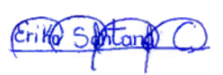 Erika Santana C